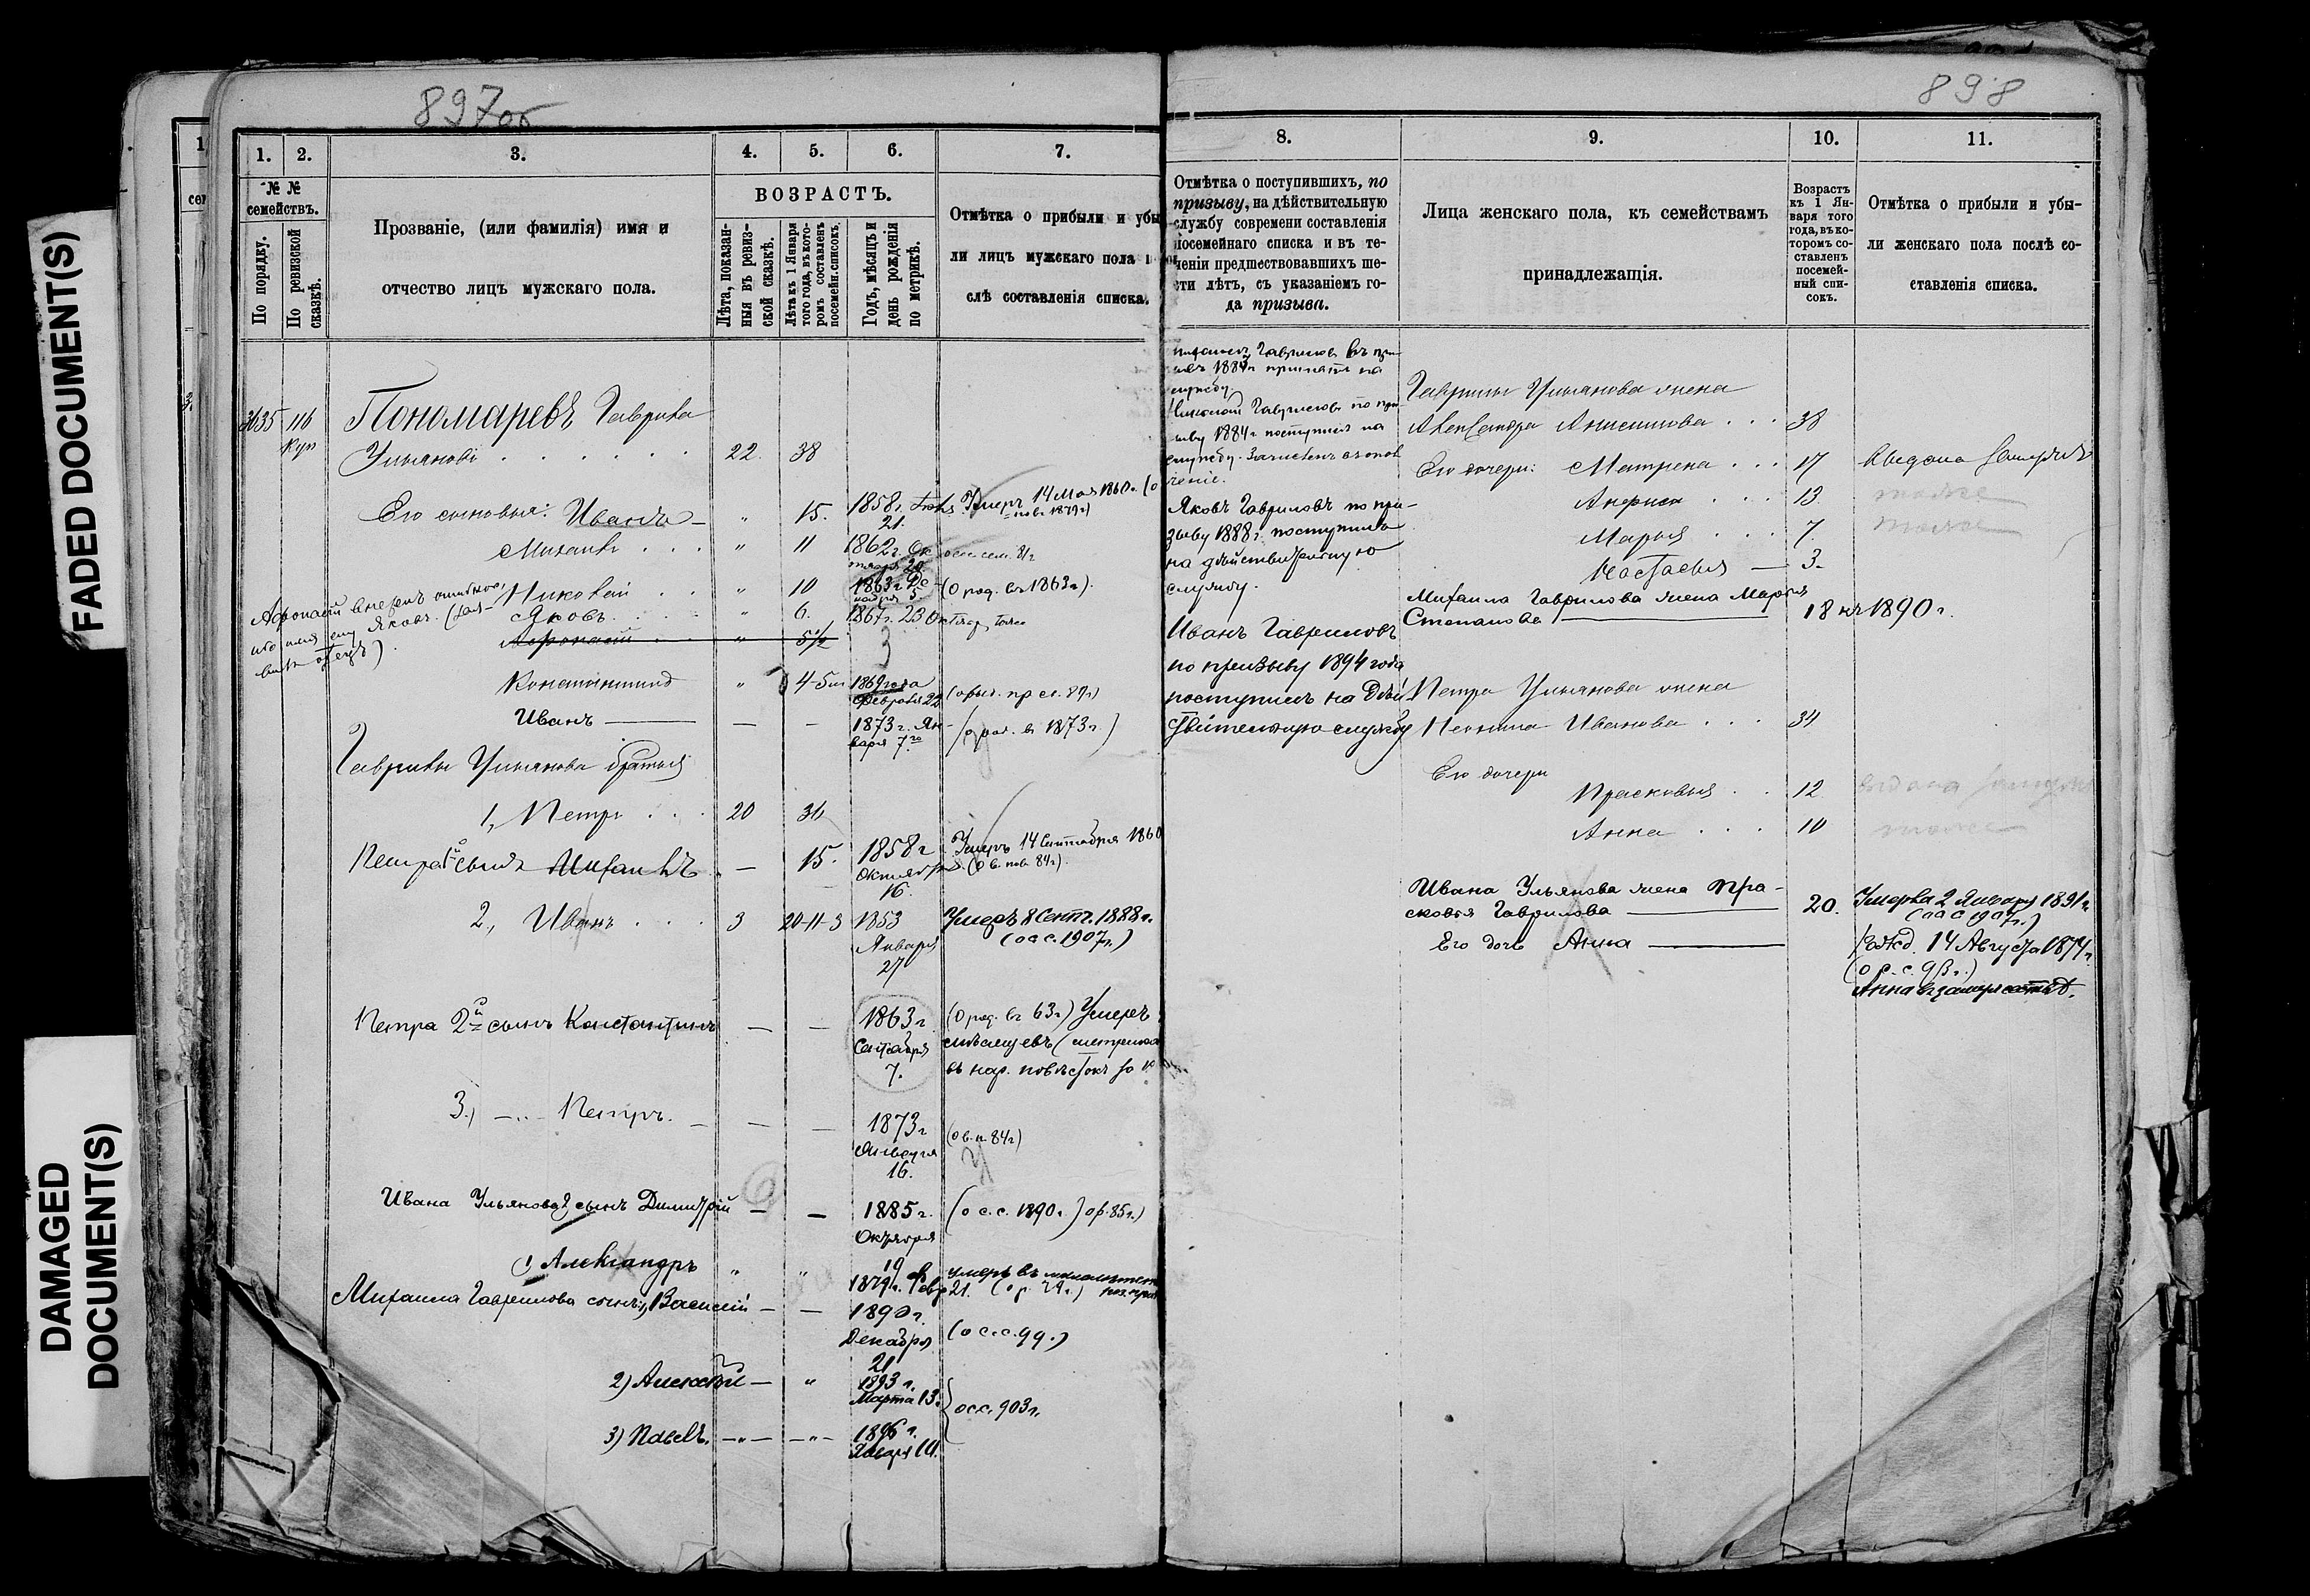 FADED DOCUMENT(S)
DAMAGED
DOCUMENT(S)
897об
898
1. 2. 3. 4. 5. 6. 7.
№ №
семействъ.
По порядку.
По ревизской
сказкѣ.
Прозваніе, (или фамилія) имя и
отчество лицъ мужскаго пола.
ВОЗРАСТЪ.
Лѣта, показан-
ныя въ ревиз-
ской сказкѣ.
Лѣта къ 1 Января
того года, въ кото-
ромъ составленъ
посемейн. списокъ.
Годъ, мѣсяцъ и
день рожденія
по метрикѣ.
Отмѣтка о прибыли и убы
ли лицъ мужскаго пола
слѣ составленія списка.
3635 116 Пономаревъ Гаврила
куп
Ульяновъ 22. 38
Его сыновья: Иванъ 15. 1858 г. 21. Умеръ 14 Мая 1860 г.
Михаилъ " 11 1862 г.
Николай " 10 1863 г. Де-
кабря 5 (О род. въ 1863 г.)
Яковъ 6. 1867 г. 23
Афонасій " 5½
Афонасій внесенъ ошибкою,
имя ему Яковъ.
Константинъ " 4-5 1869 года
Февраля 22
Иванъ — — 1873 г. Ян-
варя 7го (о род. въ 1873 г.)
Гаврилы Ульянова братья
1, Петръ 20 36
Петра 1й сынъ Михаилъ — 15. 1858 г.
Октября
16. Умеръ 14 Сентября 1860
(О в. пов. 84 г.)
2, Иванъ 3 20-11-3 1853
Января
27 Умеръ 8 Сент. 1888 г.
(о а с. 1907 г.)
Петра 2й сынъ Константинъ — — 1863 г.
Сентября
7. (О род. въ 63 г.) Умеръ
3.) —"— Петръ. — — 1873 г.
Января
16. (о в. п. 84 г.)
Ивана Ульянова 2 сынъ Димитрій — — 1885 г.
Октября
19 (о с. с. 1890 г.) о р. 85 г.)
1) Александръ " " 1879 г. Февр. 21. (о р. 79 г.)
Михаила Гаврилова сынъ: 1) Василій — — 1890 г.
Декабря
21 (о с. с. 99.)
2) Алексѣй — " 1893 г.
Марта 13.
3) Павелъ. —"— —"— 1896 г.
Января 10. о с с. 903 г.
8. 9. 10. 11.
Отмѣтка о поступившихъ, по
призыву, на дѣйствительную
службу современи составленія
посемейнаго списка и въ те-
ченіи предшествовавшихъ ше-
сти лѣтъ, съ указаніемъ го-
да призыва.
Лица женскаго пола, къ семействамъ
принадлежащія.
Возрастъ
къ 1 Ян-
варя того
года, въ ко-
торомъ со-
ставленъ
посемей-
ный спи-
сокъ.
Отмѣтка о прибыли и убы-
ли женскаго пола послѣ со-
ставленія списка.
Гавриловъ въ при-
принятъ на
службу.
Николай Гавриловъ по при-
зыву 1884 г. поступилъ на
службу. Зачисленъ въ опол
ченіе.
Яковъ Гавриловъ по при-
зыву 1888 г. поступилъ
на дѣйствительную
службу.
Иванъ Гавриловъ
по призыву 1894 года
поступилъ на Дѣй-
ствительную службу
Гаврилы Ульянова жена
Александра Анисимова 38
Его дочери: Матрена 17 выдана замужъ
13 тоже
Марья 7. тоже
Настасья — 3.
Михаила Гаврилова жена Марья
Степанова 18 къ 1890 г.
Петра Ульянова жена
Иванова 34
Его дочери
Прасковья 12 выдана замужъ
Анна 10 тоже
Ивана Ульянова жена Пра-
сковья Гаврилова 20. Умерла 2 Января 1891 г.
(о а с 1907 г.)
Его дочь Анна Рожд. 14 Августа 1874 г.
(о р. с. 93 г.)
Анна въ замужествѣ.